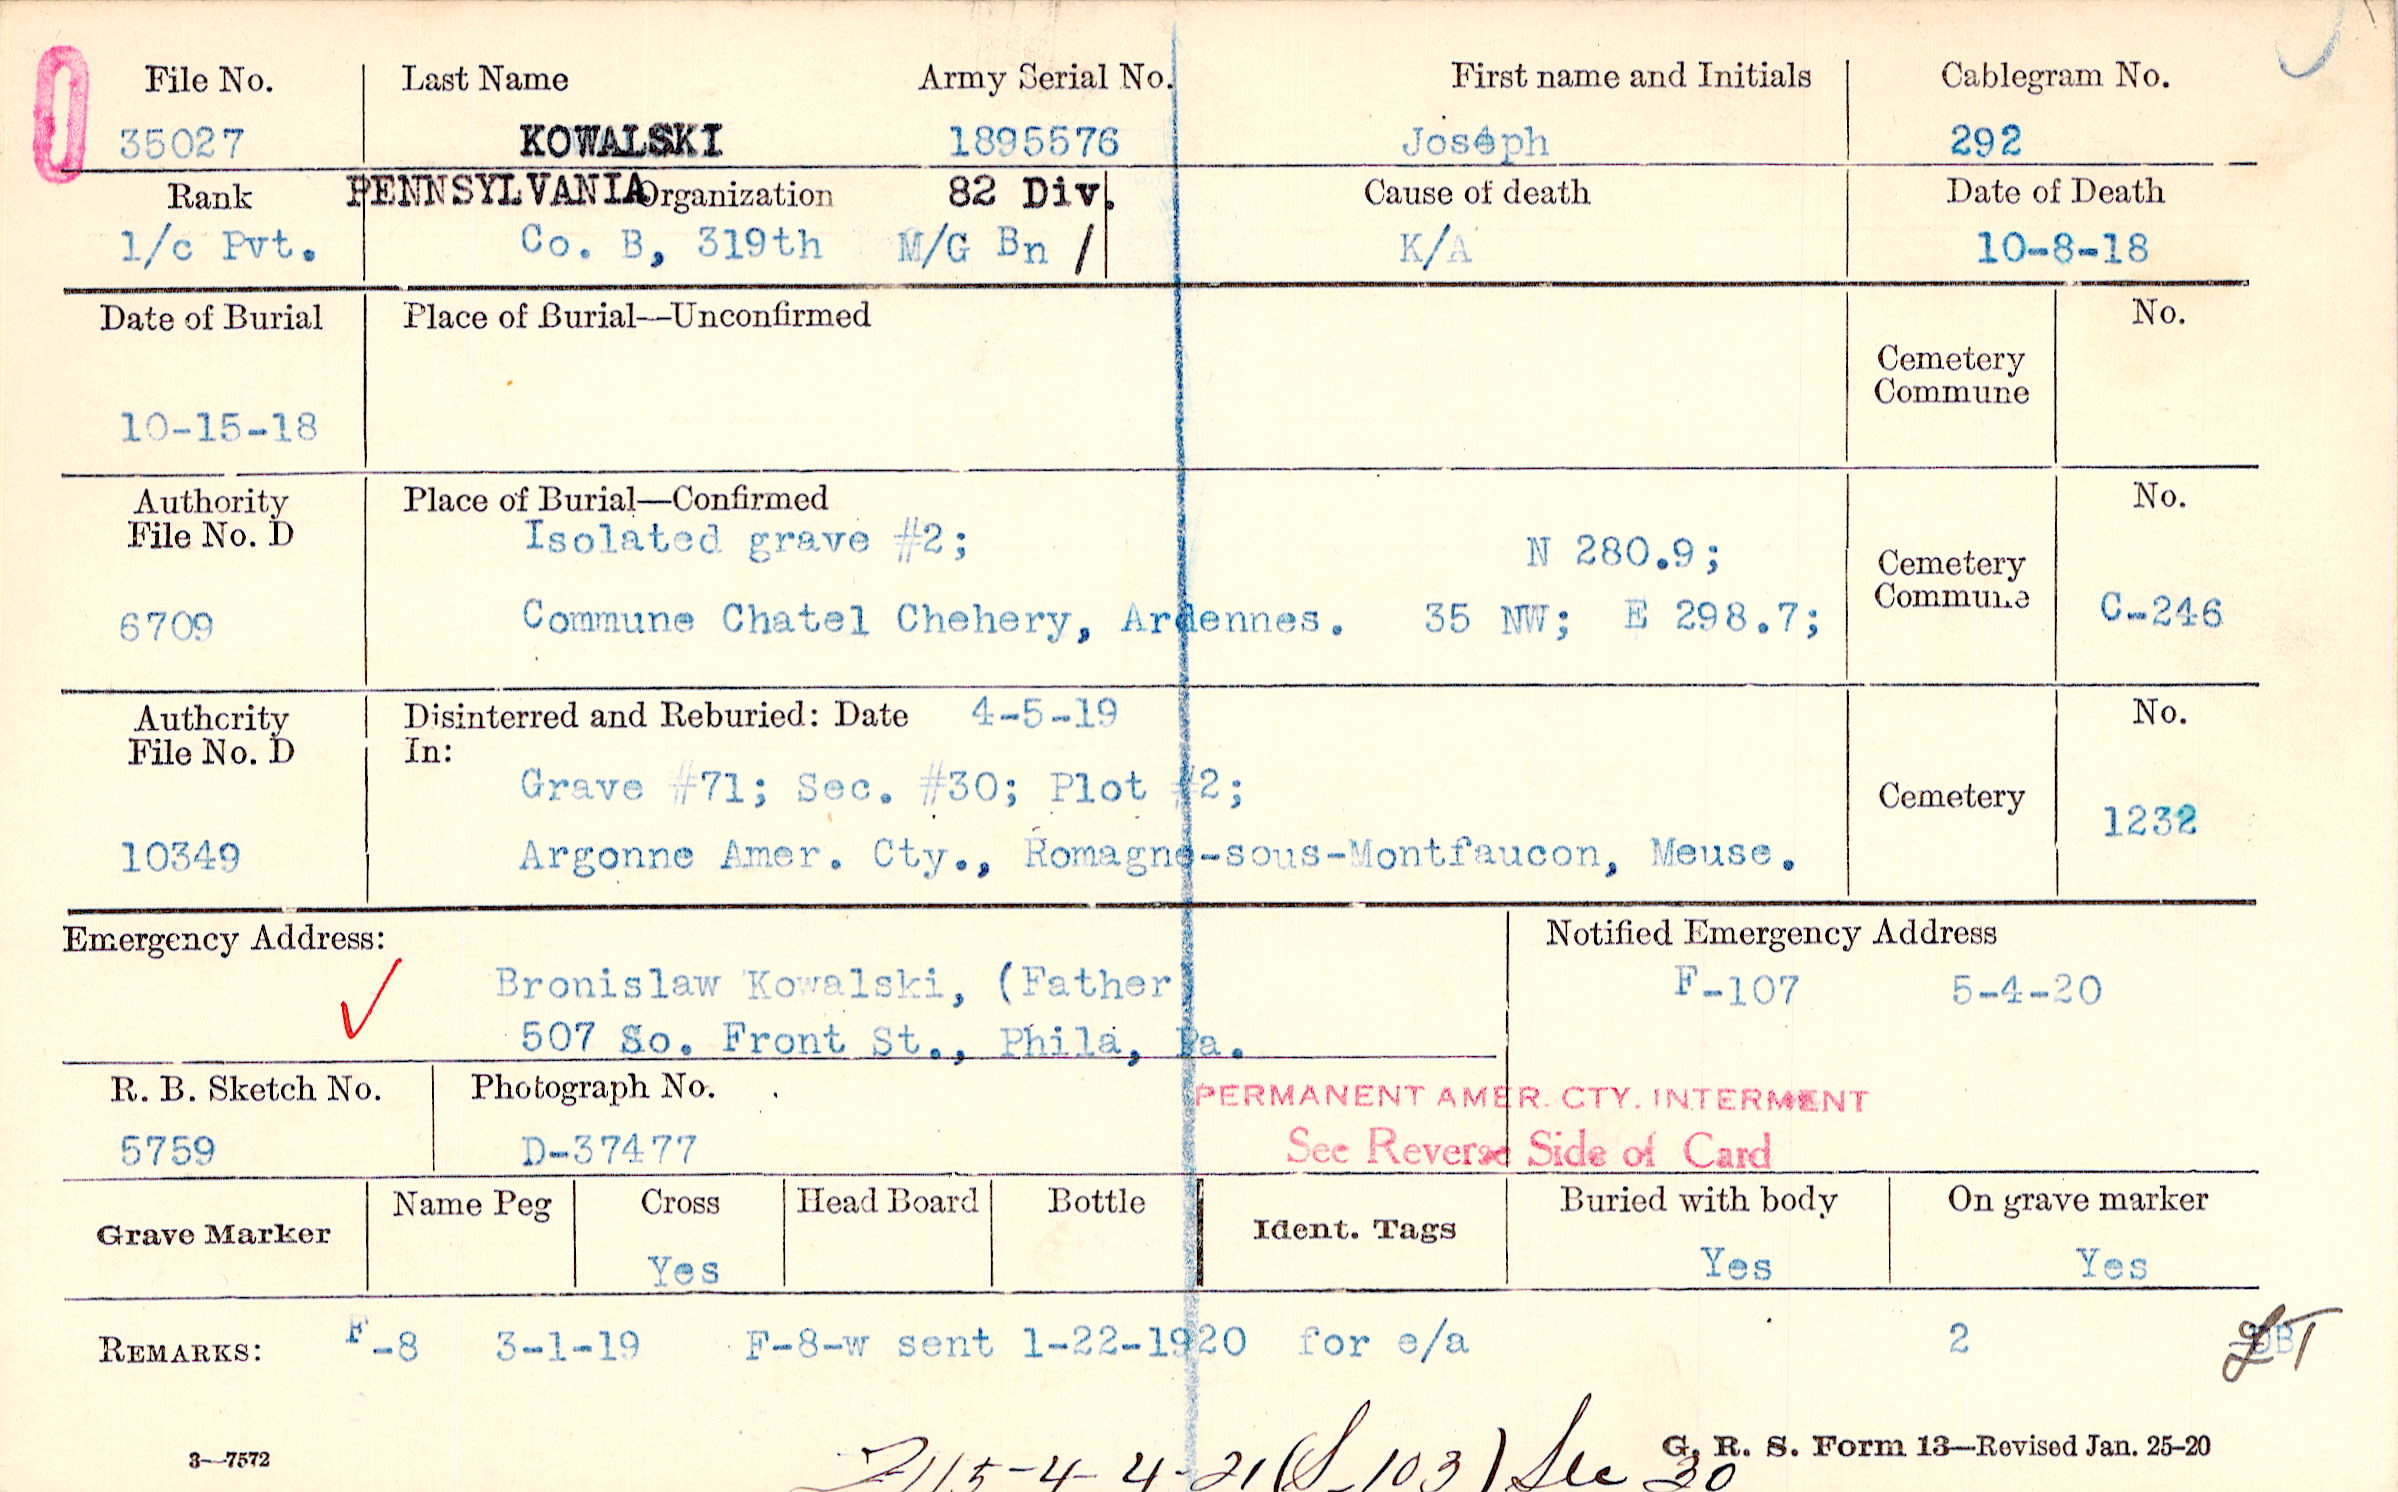 File No. Last Name Army Serial No. First name and Initials Cablegram No.
35027 KOWALSKI 1895576 Joseph 292
Rank PENNSYLVANIA Organization 82 Div. Cause of death Date of Death
1/c Pvt. Co. B, 319th M/G Bn / K/A 10-8-18
Date of Burial Place of Burial—Unconfirmed No.
Cemetery
Commune
10-15-18
Authority Place of Burial—Confirmed No.
File No. D Isolated grave #2; N 280.9;
Cemetery
Commune
6709 Commune Chatel Chehery, Ardennes. 35 NW; E 298.7; C-246
Authority Disinterred and Reburied: Date 4-5-19 No.
File No. D In:
Grave #71; Sec. #30; Plot #2; Cemetery 1232
10349 Argonne Amer. Cty., Romagne-sous-Montfaucon, Meuse.
Emergency Address: Notified Emergency Address
Bronislaw Kowalski, (Father F-107 5-4-20
507 So. Front St., Phila, Pa.
R. B. Sketch No. Photograph No. PERMANENT AMER. CTY. INTERMENT
5759 D-37477 See Reverse Side of Card
Grave Marker Name Peg Cross Head Board Bottle Ident. Tags Buried with body On grave marker
Yes Yes Yes
REMARKS: F-8 3-1-19 F-8-w sent 1-22-1920 for e/a 2
3—7572 G. R. S. Form 13—Revised Jan. 25-20
4-21 (S-103) Sec 30